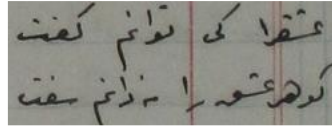 عشقرا کی توانم کفت
کوهر عشق را نه دانم سفت